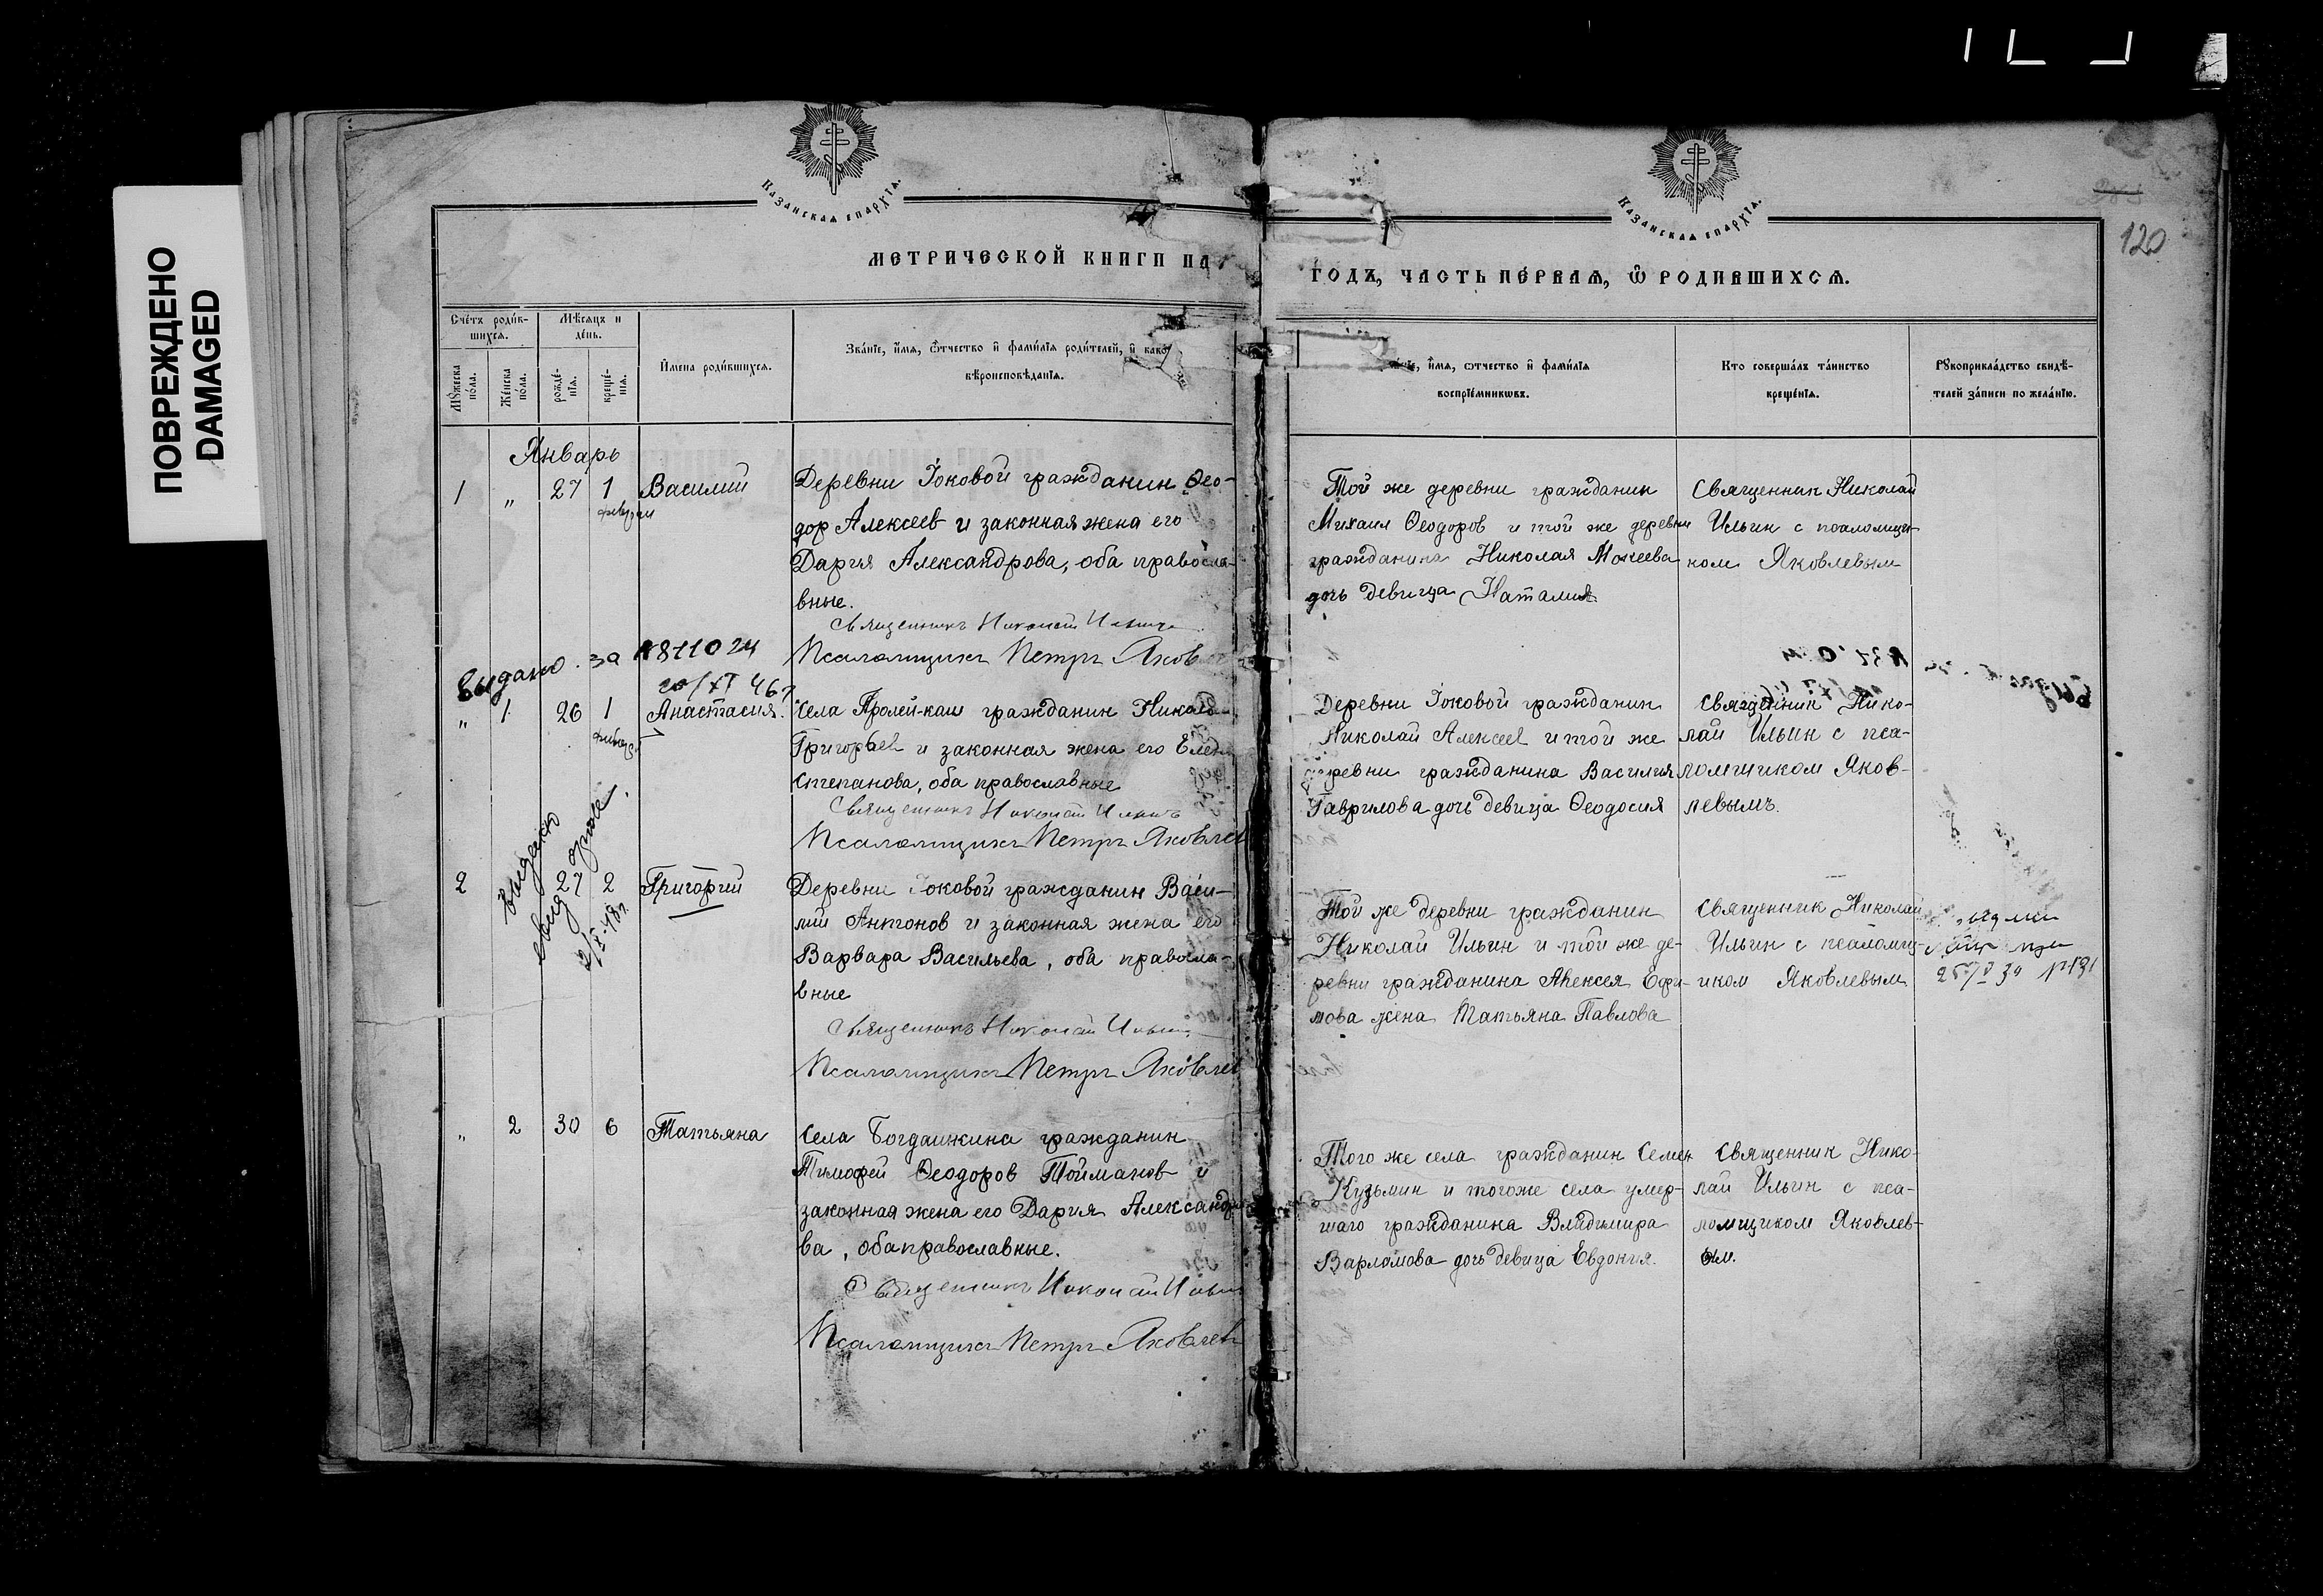 ПОВРЕЖДЕНО
DAMAGED
120
Казанская епархія.
Казанская епархія.
МЕТРИЧЕСКОЙ КНИГИ НА
ГОДЪ, ЧАСТЬ ПЕРВАЯ, Ѿ РОДИВШИХСЯ.
Счетъ родив-
шихся.
Мужеска
пола.
Женска
пола.
Мѣсяцъ и
день.
рожде-
нія.
креще-
нія.
Имена родившихся.
Званіе, имя, ѿтчество и фамилія родителей, и како
вѣроисповѣданія.
имя, ѿтчество и фамилія
воспріемниковъ.
Кто совершалъ таинство
крещенія.
Рукоприкладство свидѣ-
телей записи по желанію.
Январь
1 " 27 1 Василий
февраля
Деревни Іоковой гражданин Ѳео-
дор Алексеев и законная жена его
Дария Александрова, оба правосла-
вные.
Священникъ Николай Ильинъ
Псаломщикъ Петръ Яков
Той же деревни гражданин
Михаил Ѳеодоров и той же деревни
гражданина Николая Мокеева
дочь девица Наталия
Священник Николай
Ильин с псаломщи-
ком Яковлевым
Выдано за №811024
20/XI 46г
" 1 26 1 Анастасия.
Села Пролей-каш гражданин Никола
Григорьев и законная жена его Елена
Степанова, оба православные
Священникъ Николай Ильинъ
Псаломщикъ Петръ Яковлев
Деревни Іоковой гражданин
Николай Алексеев и той же
деревни гражданина Василия
Гаврилова дочь девица Ѳеодосия
Священник Нико-
лай Ильин с пса-
ломщиком Яков-
левымъ.
выдано
2 27 2 Григорий
Деревни Іоковой гражданин Васи-
лий Антонов и законная жена его
Варвара Васильева, оба правосла-
вные
Священникъ Николай Ильинъ
Псаломщикъ Петръ Яковлев
Той же деревни гражданин
Николай Ильин и той же де-
ревни гражданина Алексея Ефи-
мова жена Татьяна Павлова
Священник Николай
Ильин с псаломщ-
иком Яковлевым
" 2 30 6 Татьяна
Села Богдашкина гражданин
Тимофей Ѳеодоров Тойманов и
законная жена его Дария Александро
ва, оба православные.
Священникъ Николай Ильин
Псаломщикъ Петръ Яковлевъ
Того же села гражданин Семен
Кузьмин и тогоже села умер-
шаго гражданина Владимира
Варламова дочь девица Евдокия.
Священник Нико-
лай Ильин с пса-
ломщиком Яковлев-
ым.